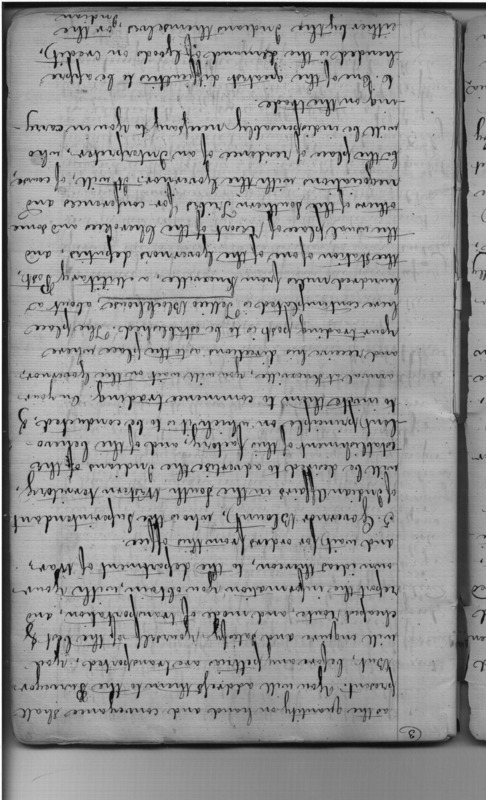 3
as the quantity on hand and conveyance shall
present. You will address them to the Purveyor
But, before any peltries are transported, you
will enquire and satisfy yourself of the best &
cheapest route, and mode of transportation, and
report the information you obtain, with your
own ideas thereon, to the department of War,
and wait for orders from this office.
5. Governor Blount, who is the Superintendant
of Indian Affairs in the South Western Territory,
will be desired to advertise the Indians of the
establishment of this factory, and of the believo
lent principles on which it is to be conducted, &
to invite them to commence trading. On your
arrival at Knoxville, you will wait on the Governor,
and receive his directions as to the place where
your trading post is to be established. The place
here contemplated is Tellico Blockhouse about a
hundred miles from Knoxville, a Military Post,
the station of one of the Governors deputies, and
the usual place of resort of the Cherokees and some
others of the Southern Tribes for conferences and
negociations with the Governor: It will, of course,
be the place of residence of an Interpreter, who
will be indispensably necessary to you in carry-
ing on the trade.
6. One of the greatest difficulties to be appre
hended is the demand of Goods on credit,
either by the Indians themselves, or the
Indian